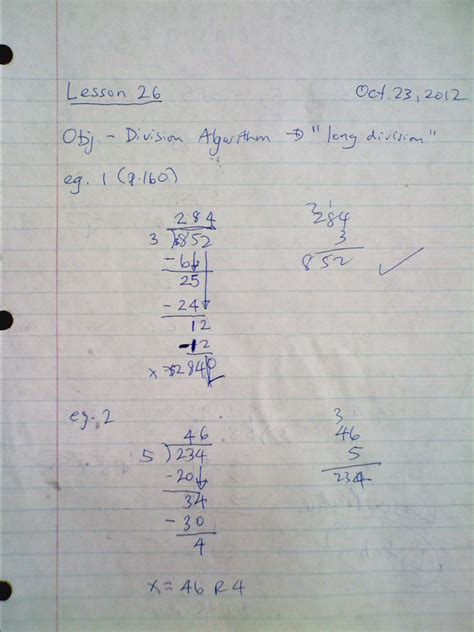 Lesson 26 Oct. 23, 2012
Obj. - Division Algorithm → "long division"
eg. 1 (p.160)
284
3 ) 852
-6
25
-24
12
-12
0
x = $284
21
284
3
852 ✓
eg. 2
46
5 ) 234
-20
34
-30
4
x = 46 R 4
3
46
5
234